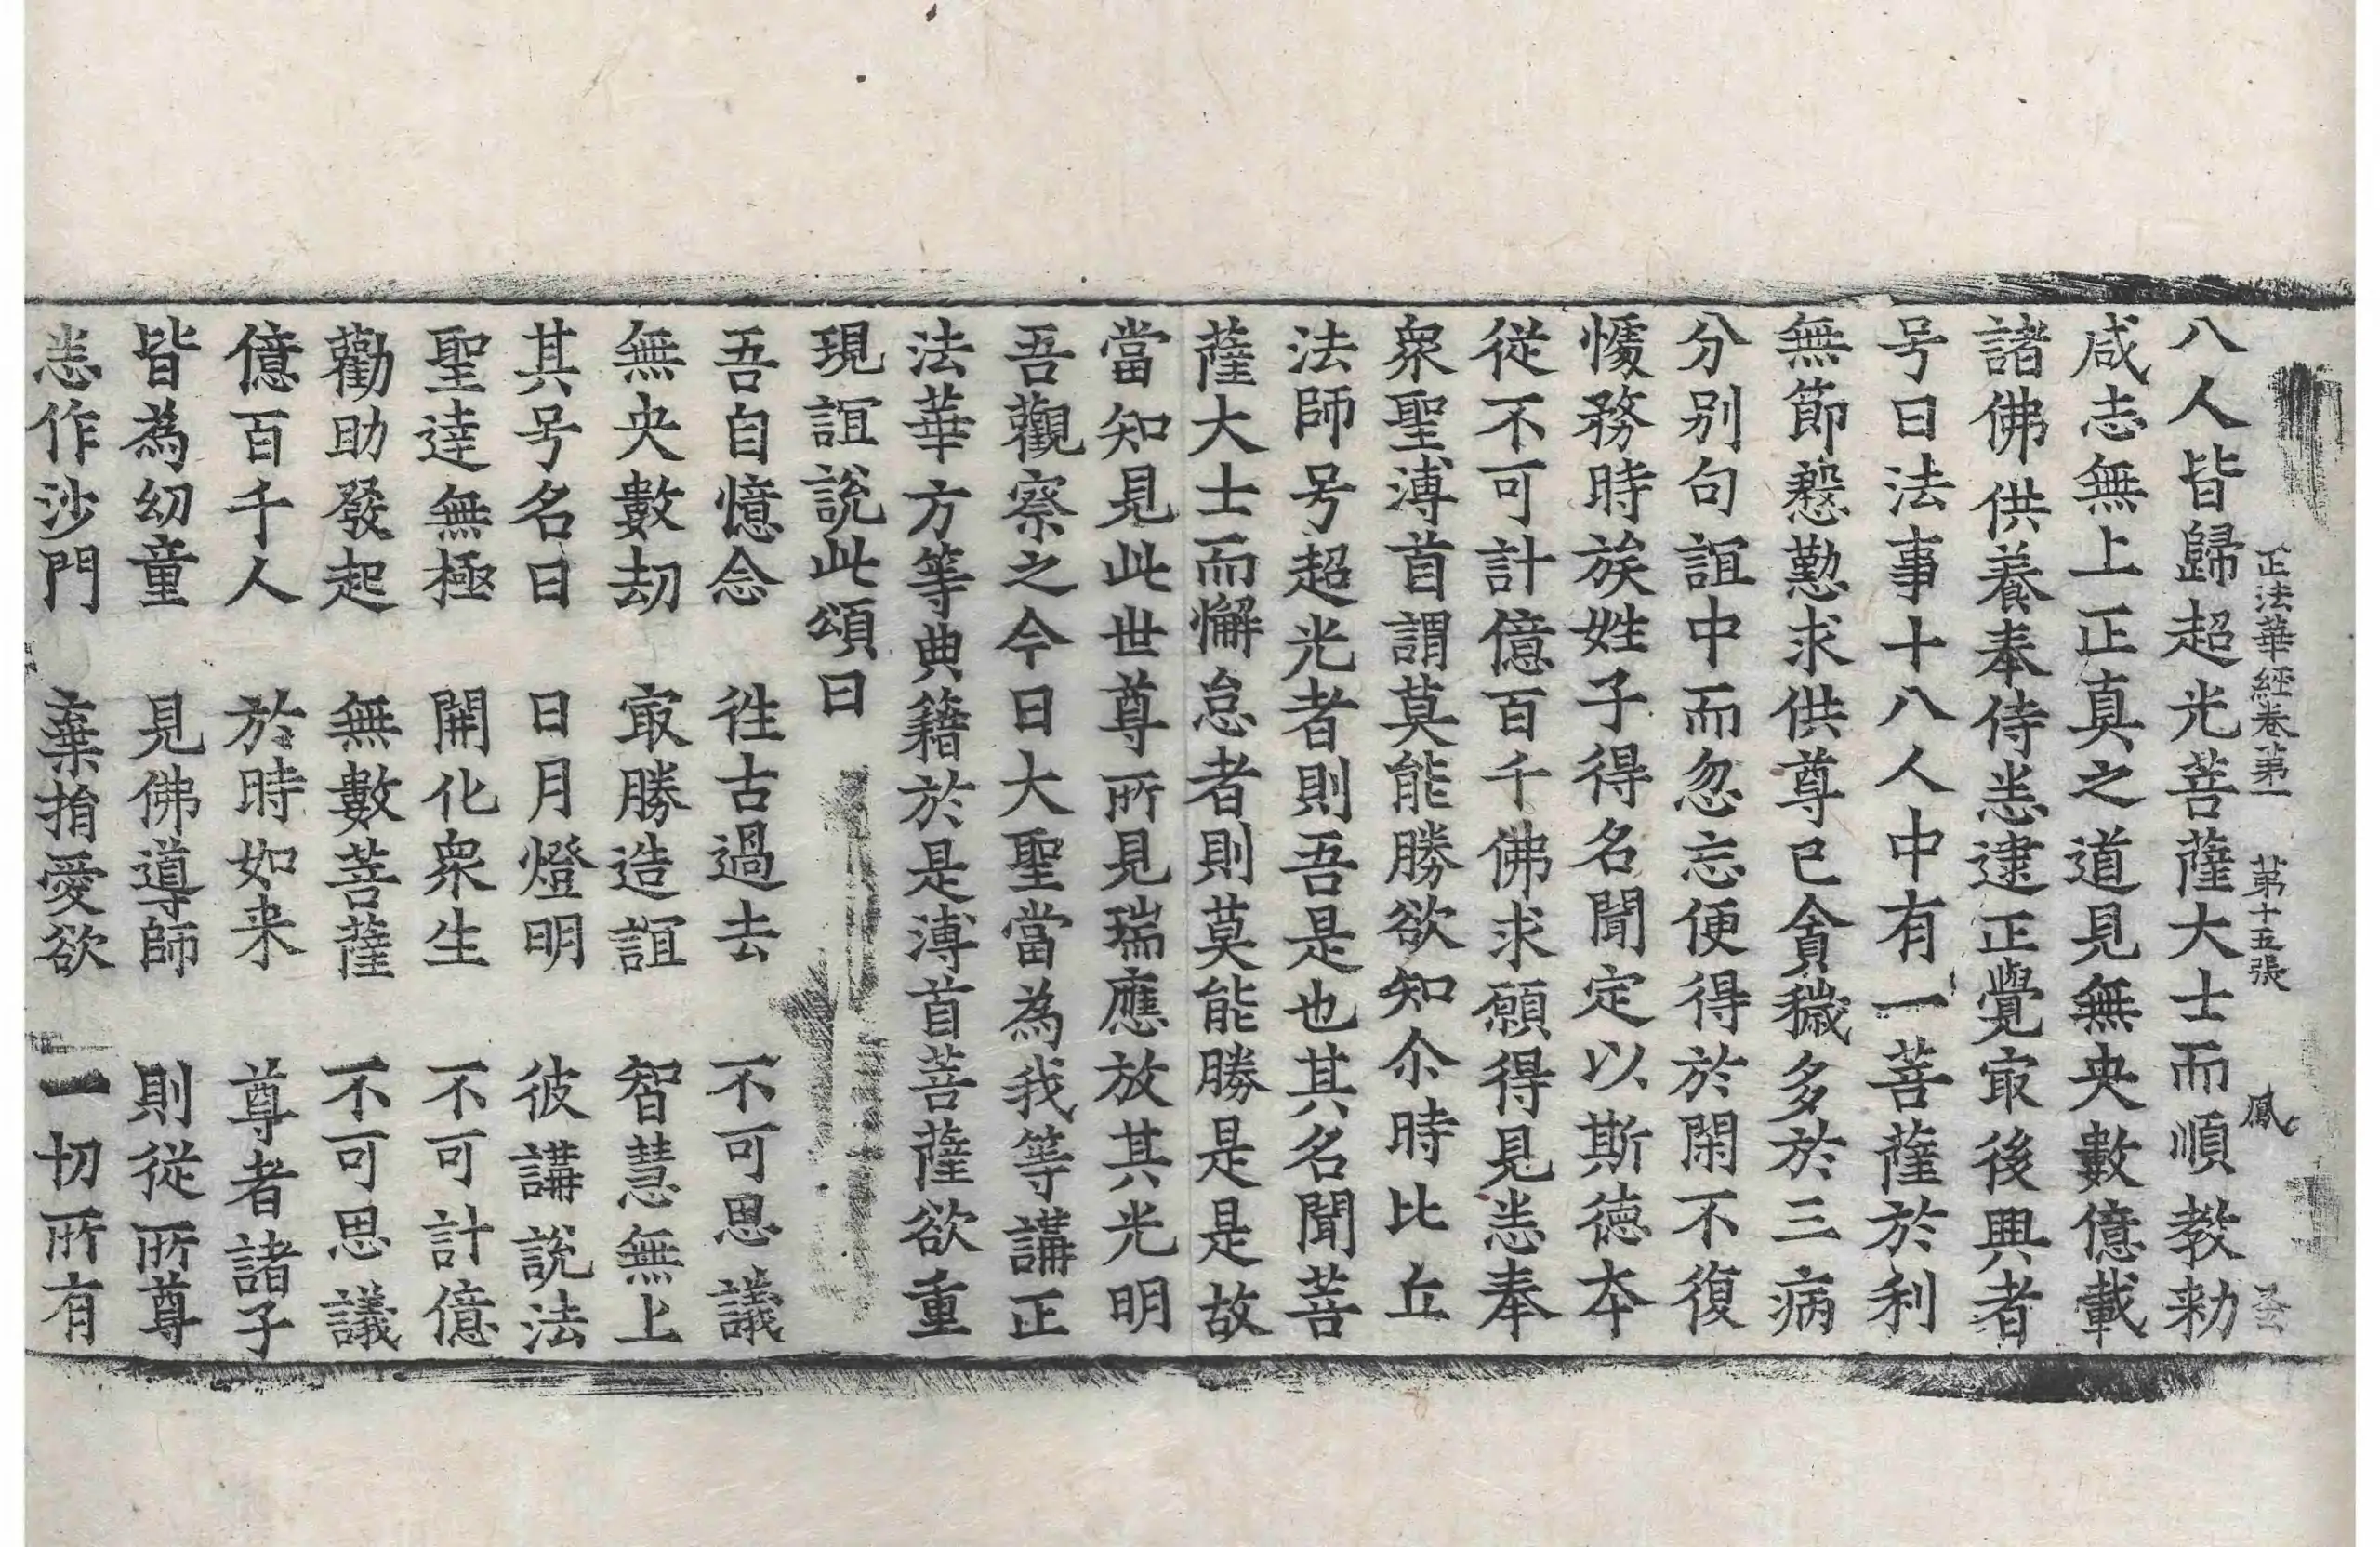 正法華經卷第一 第十五張 鳳
八人皆歸超光菩薩大士而順教勑
咸志無上正真之道見無央數億載
諸佛供養奉侍悉逮正覺㝡後興者
号曰法事十八人中有一菩薩於利
無節慇懃求供尊己貪穢多於三病
分別句誼中而忽忘便得於閑不復
懅務時族姓子得名聞定以斯德本
從不可計億百千佛求願得見悉奉
衆聖溥首謂莫能勝欲知尒時比丘
法師号超光者則吾是也其名聞菩
薩大士而懈怠者則莫能勝是是故
當知見此世尊所見瑞應放其光明
吾觀察之今日大聖當為我等講正
法華方等典籍於是溥首菩薩欲重
現誼說此頌曰
吾自憶念 徃古過去 不可思議
無央數劫 㝡勝造誼 智慧無上
其号名曰 日月燈明 彼講說法
聖達無極 開化衆生 不可計億
勸助發起 無數菩薩 不可思議
億百千人 於時如来 尊者諸子
皆為幼童 見佛導師 則從所尊
悉作沙門 棄捐愛欲 一切所有